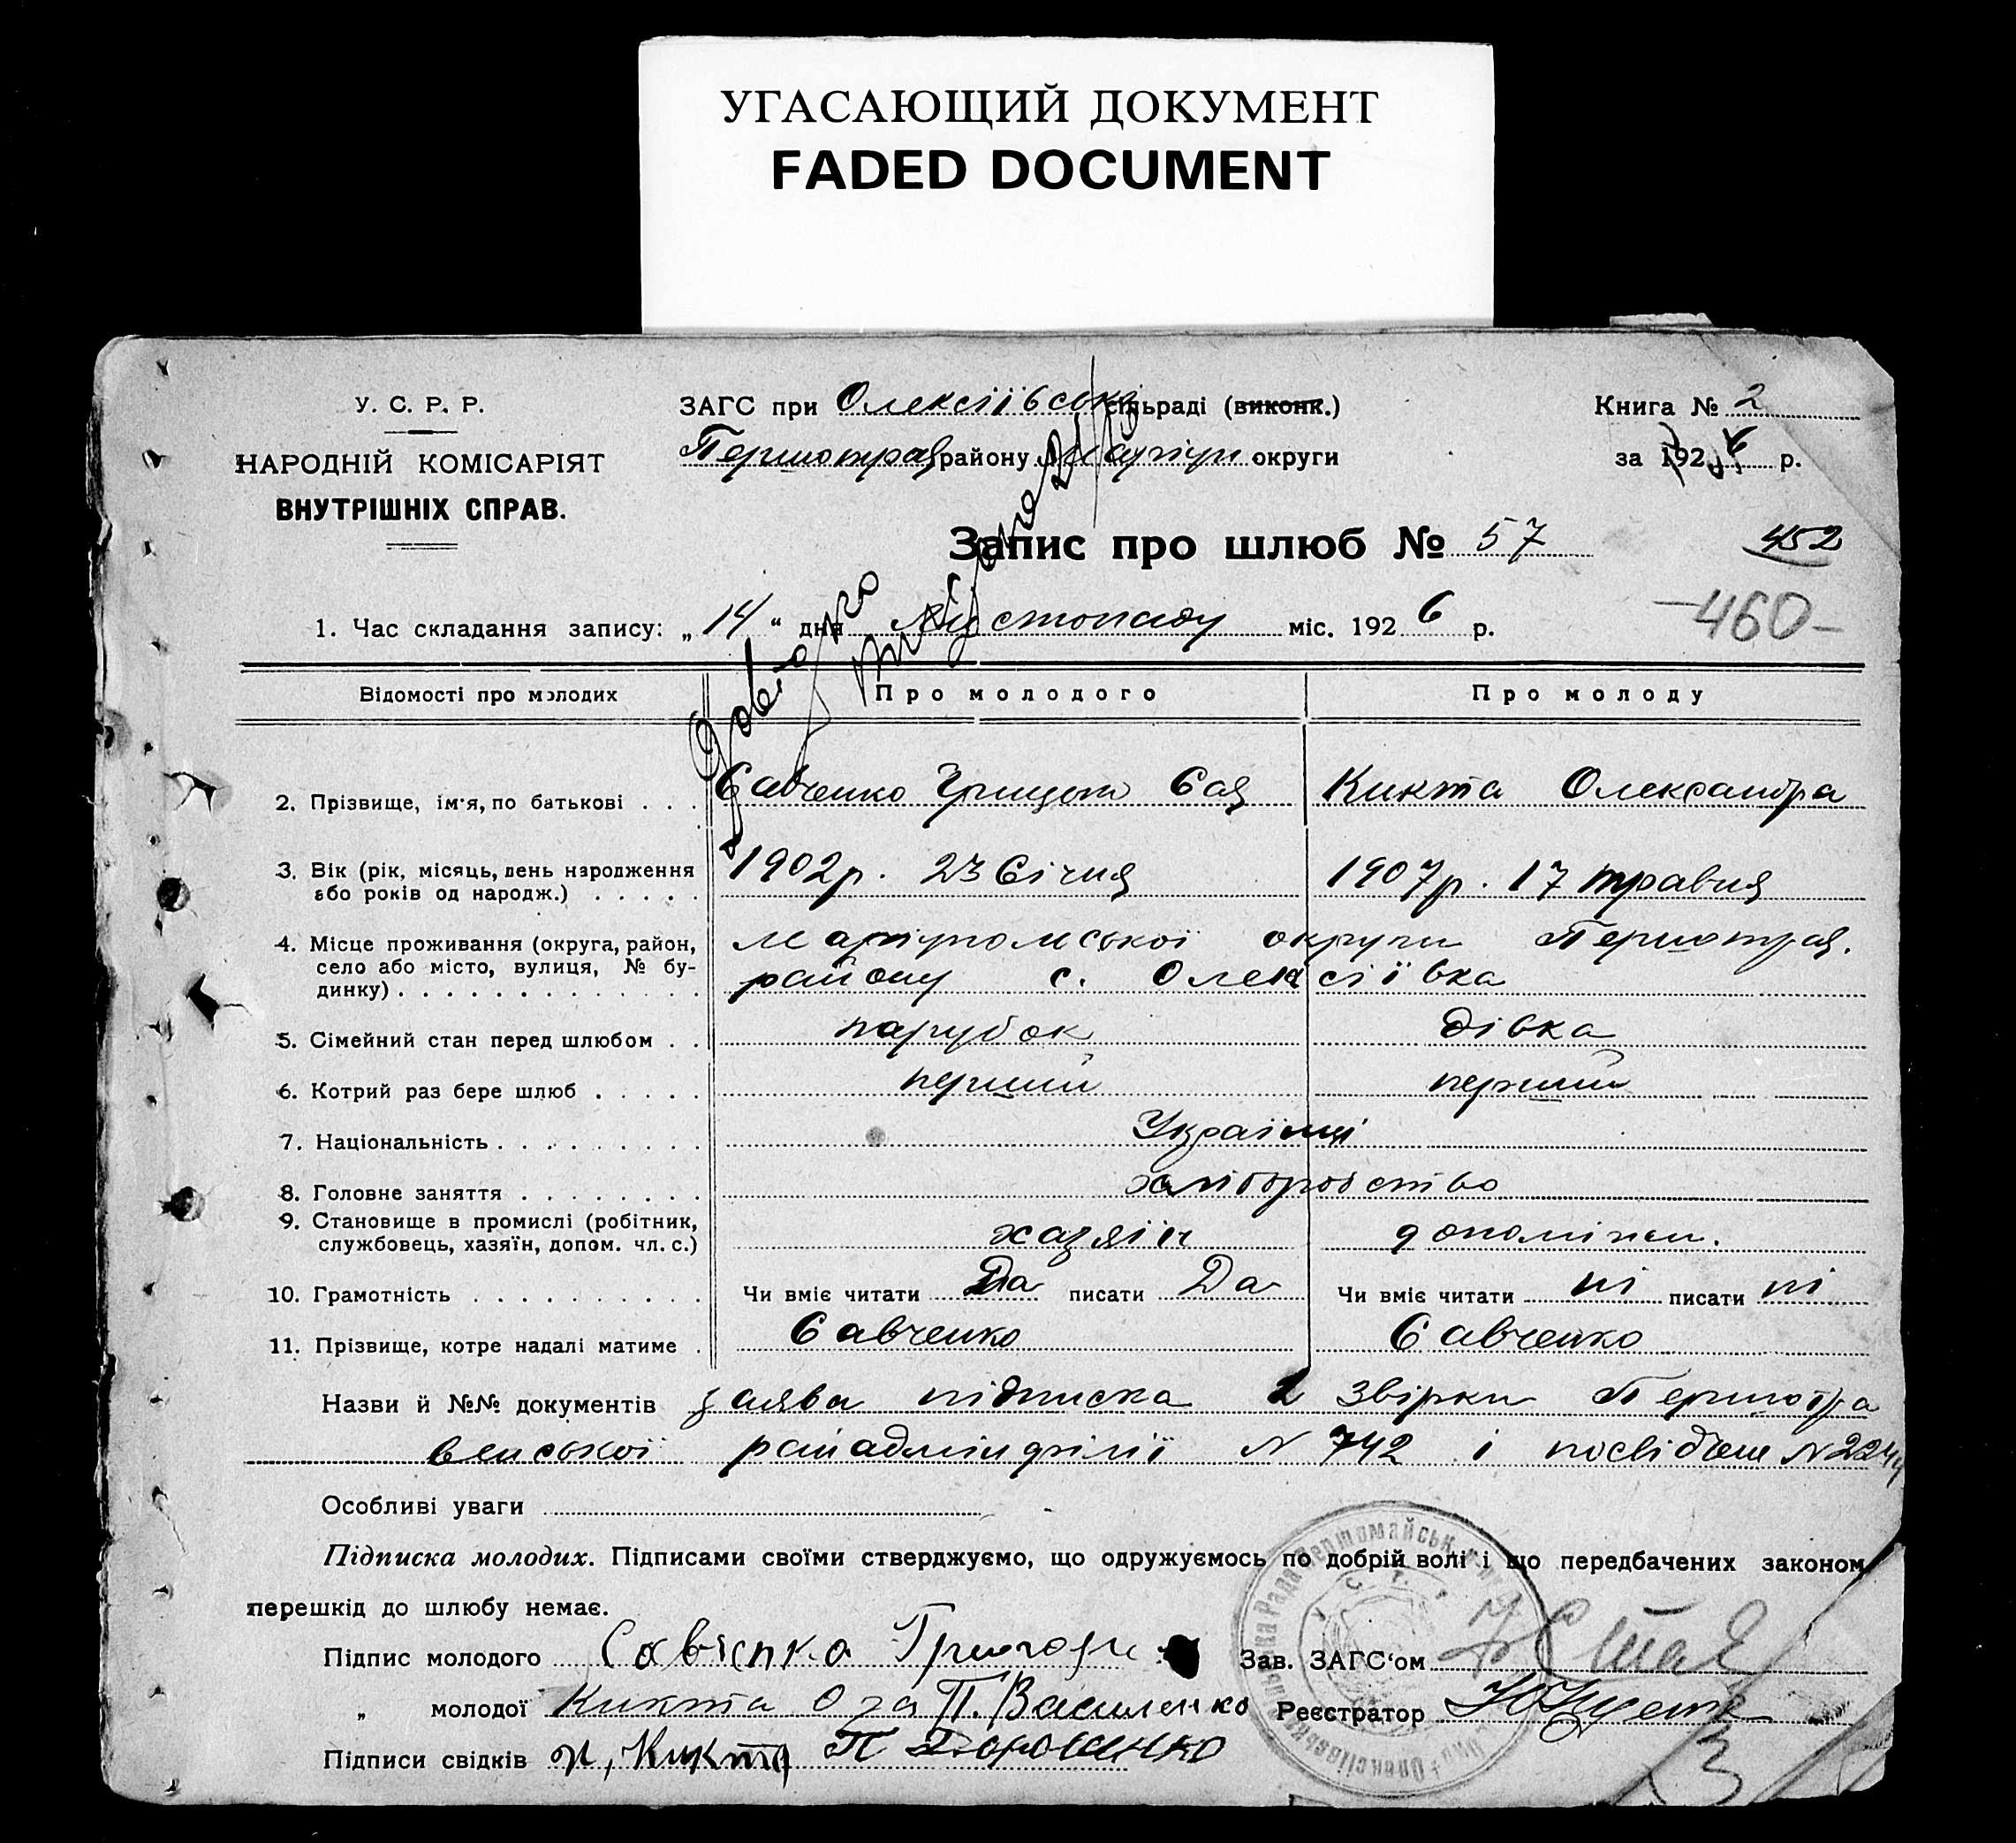 УГАСАЮЩИЙ ДОКУМЕНТ
FADED DOCUMENT
У. С. Р. Р.
НАРОДНІЙ КОМІСАРІЯТ
ВНУТРІШНІХ СПРАВ.
ЗАГС при Олексіївські сільраді (виконк.)
Першотрав району Маріуп округи
Книга № 2
за 1926 р.
Запис про шлюб № 57
452
-460-
1. Час складання запису: „14" дня Листопаду міс. 1926 р.
Відомості про молодих Про молодого Про молоду
2. Прізвище, ім'я, по батькові . . . Савченко Грицот Сав Кикта Олександра
3. Вік (рік, місяць, день народження 1902р. 23 Січня 1907р. 17 травня
або років од народж.) . . . . .
4. Місце проживання (округа, район, Маріупольської округи Першотрав.
село або місто, вулиця, № бу- району с. Олексіївка
динку) . . . . . . . . . . . . .
5. Сімейний стан перед шлюбом . . парубок дівка
6. Котрий раз бере шлюб . . . . . перший перший
7. Національність . . . . . . . . . Українці
8. Головне заняття . . . . . . . . хліборобство
9. Становище в промислі (робітник,
службовець, хазяїн, допом. чл. с.) хазяїн допоміжн.
10. Грамотність . . . . . . . . . . Чи вміє читати Да писати Да Чи вміє читати ні писати ні
11. Прізвище, котре надалі матиме . Савченко Савченко
Назви й №№ документів заява підписка 2 звірки Першотра
венської райадмінфілії N 742 і посвідчен N 2244
Особливі уваги
Підписка молодих. Підписами своїми стверджуємо, що одружуємось по добрій волі і що передбачених законом
перешкід до шлюбу немає.
Підпис молодого Савченко Григори Зав. ЗАГС‘ом
„ молодої Кикта О за П. Василенко Реєстратор
Підписи свідків Кикта П Дорошенко